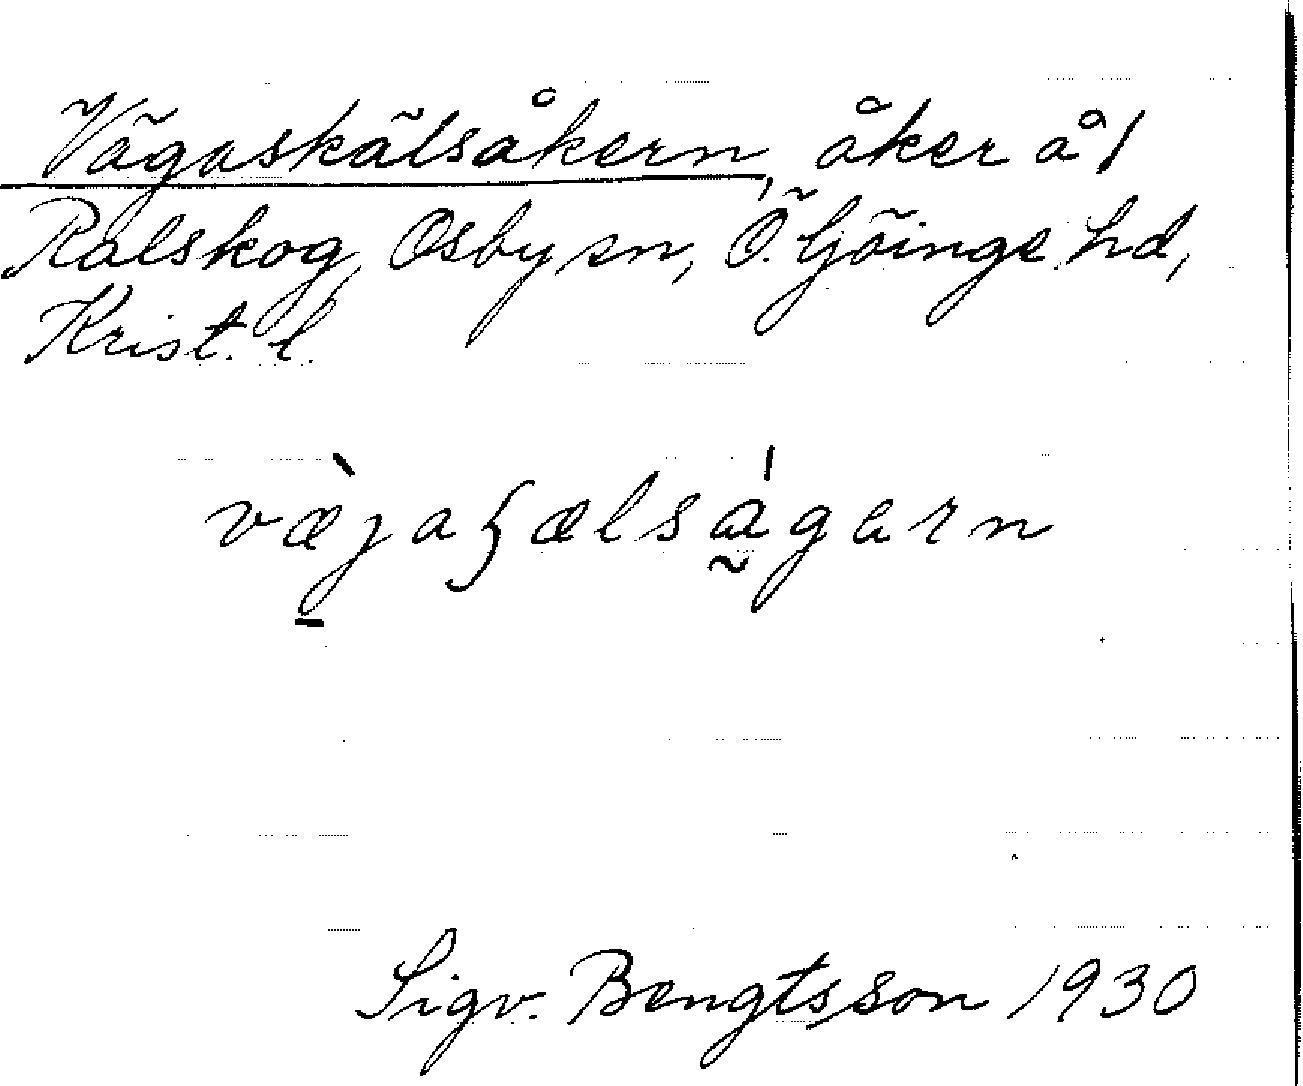 Vägaskälsåkern, åker å 1
Ralskog, Osby sn, Ö. Göinge hd,
Krist. l.
væ̀jaʃælságern
Sigv. Bengtsson 1930